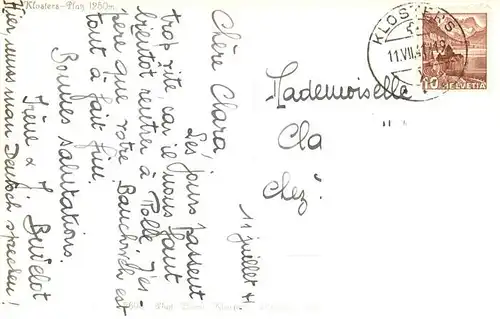 Klosters-Platz 1250m.
11 juillet 4
Chère Clara,
Les jours passent
trop vite, car il nous faut
bientôt rentrer à Rolle. J'es-
père que votre Bauchweh est
tout à fait fini.
Bonnes salutations.
Irène & J.
Hier, muss man Deutsch sprechen!
KLOSTERS
11.VII.4
10 HELVETIA
Mademoiselle
Cla
Chez